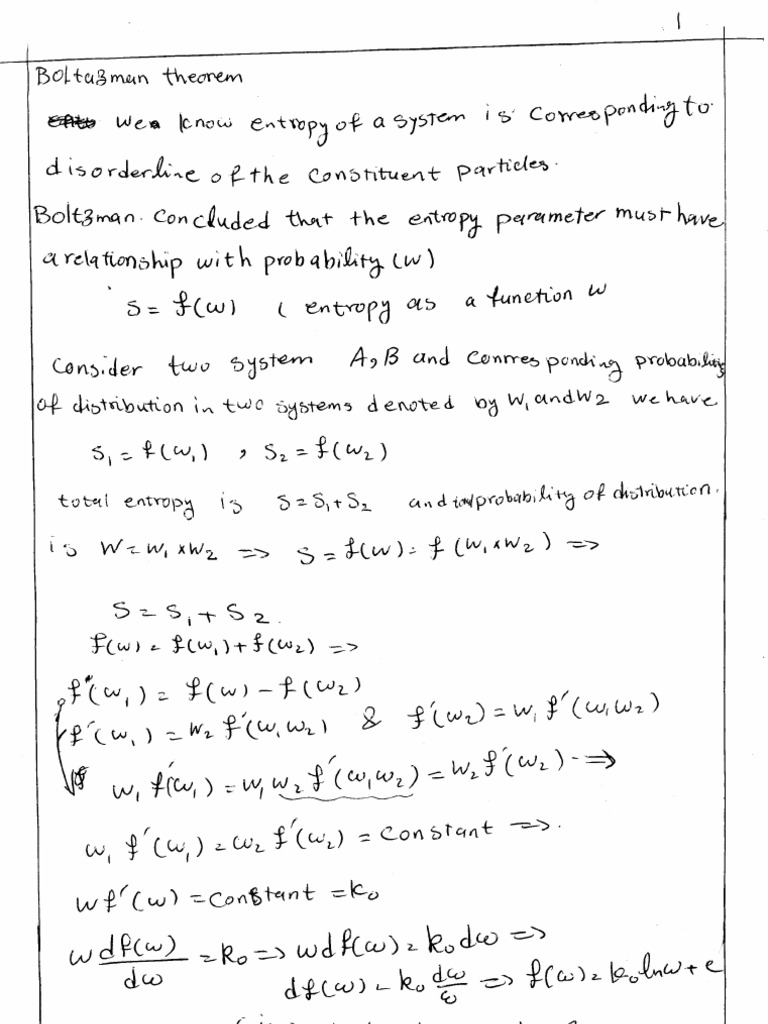 1
Boltazman theorem
we know entropy of a system is corresponding to
disorderline of the constituent particles.
Boltzman. Concluded that the entropy parameter must have
a relationship with probability (w)
S = f(w) ( entropy as a function w
Consider two system A, B and conrresponding probability
of distribution in two systems denoted by W₁ and W2 we have
S₁ = f(w₁) , S₂ = f(w₂)
total entropy is S = S₁ + S₂ and probability of distribution.
is W = W₁ × W₂ => S = f(w) = f (W₁ × W₂) =>
S = S₁ + S₂.
f(w) = f(w₁) + f(w₂) =>
f(w₁) = f(w) - f(w₂)
f'(w₁) = W₂ f'(w₁w₂) & f'(w₂) = w₁ f'(w₁w₂)
w₁ f'(w₁) = w₁ w₂ f'(w₁w₂) = w₂ f'(w₂) =>
w₁ f'(w₁) = w₂ f'(w₂) = constant =>.
w f'(w) = constant = k₀
w df(w)/dω = k₀ => w df(ω) = k₀ dω =>
df(ω) = k₀ dω/ω => f(ω) = k₀ lnω + c